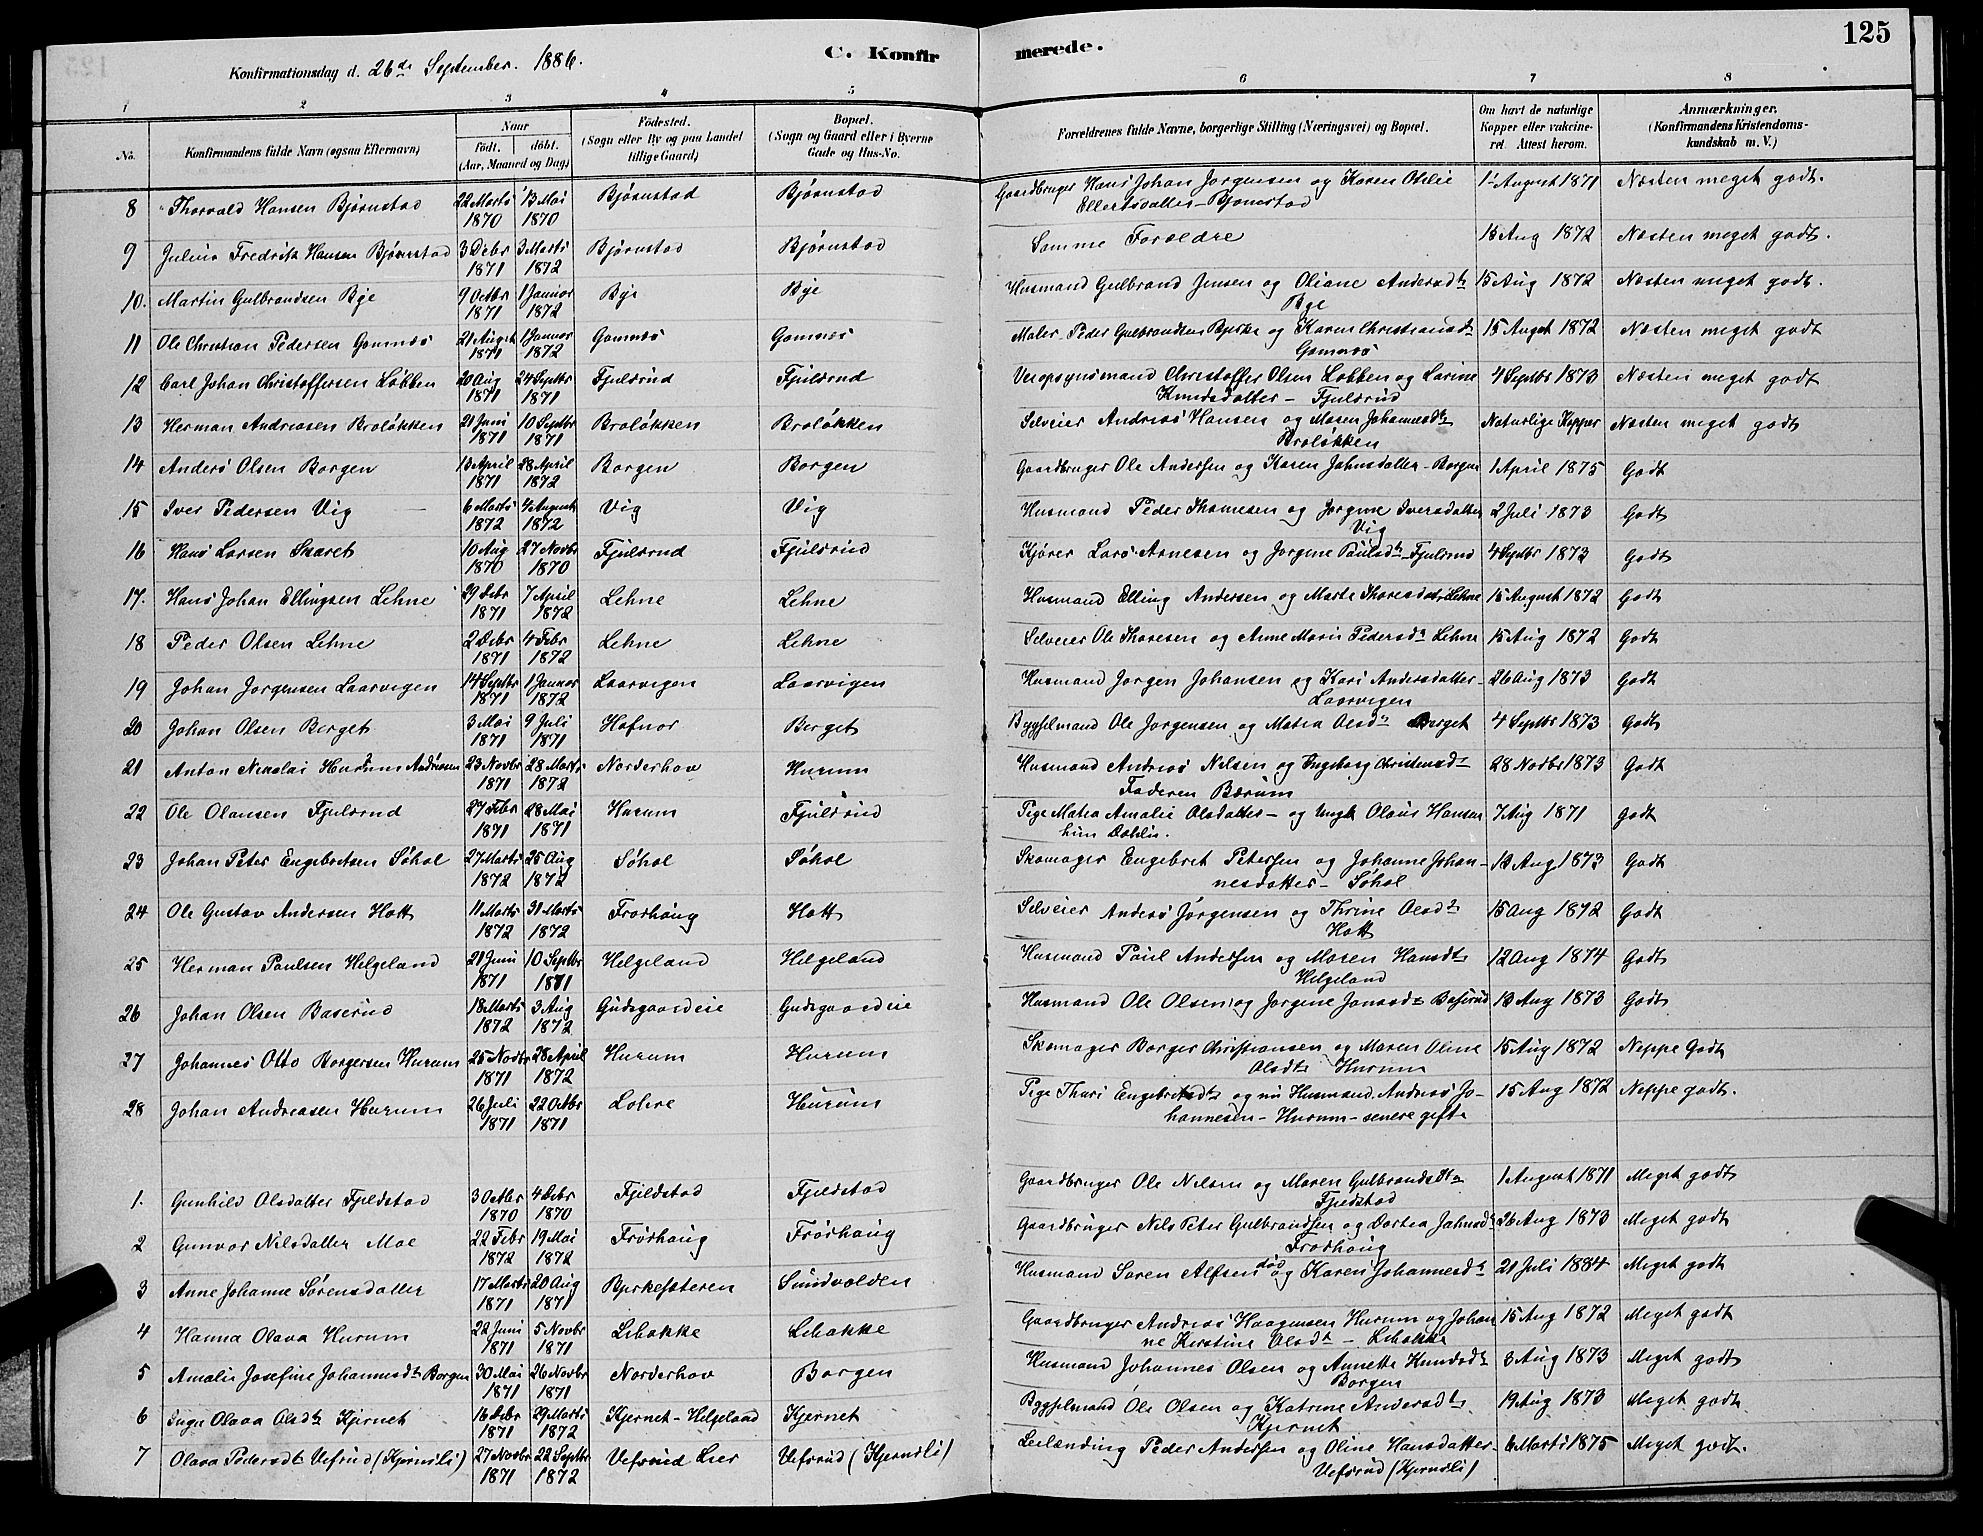 125
Konfirmationsdag d. 26de September. 1886.
C. Konfirmerede.
1 2 3 4 5 6 7 8
No. Konfirmandens fulde Navn (ogsaa Efternavn) Naar födt. döbt. (Aar, Maaned og Dag) Födested. (Sogn eller By og paa Landet tillige Gaard) Bopæl. (Sogn og Gaard eller i Byerne Gade og Hus-No. Forældrenes fulde Navne, borgerlige Stilling (Næringsvei) og Bopæl. Om havt de naturlige Kopper eller vakcineret. Attest herom. Anmærkninger. (Konfirmandens Kristendomskundskab m. V.)
8 Thorvald Hansen Bjørnstad 22 Marts 1870 13 Mai 1870 Bjørnstad Bjørnstad Gaardbruger Hans Johan Jorgensen og Karen Othilie Ellertsdatter - Bjørnstad 1 August 1871 Næsten meget godt.
9 Julius Fredrik Hansen Bjørnstad 3 Debr 1871 3 Marts 1872 Bjørnstad Bjørnstad Samme Forældre 13 Aug 1872 Næsten meget godt.
10. Martin Gulbrandsen Bye 9 Octbr 1871 1 Januar 1872 Bye Bye Husmand Gulbrand Jensen og Oliane Andersdtr Bye 15 Aug 1872 Næsten meget godt.
11 Ole Christian Pedersen Gomnæs 21 August 1871 1 Januar 1872 Gomnæs Gomnæs Maler Peder Gulbrandsen Byrke og Karen Christiansdtr Gomnæs 15 August 1872 Næsten meget godt
12 Carl Johan Christoffersen Løbben 20 Aug 1871 24 Septbr 1871 Fjulsrud Fjulsrud Veiopsynsmand Christoffer Olsen Løbben og Larine Knudsdatter - Fjulsrud 4 Septbr 1873 Næsten meget godt
13 Herman Andreasen Braløkken 21 Juni 1871 10 Septbr 1871 Braløkken Braløkken Selveier Andreas Hansen og Maren Johannesdtr Braløkken Naturlige Kopper Næsten meget godt
14 Anders Olsen Borgen 13 April 1871 28 April 1872 Borgen Borgen Gaardbruger Ole Andersen og Karen Jahnsdatter - Borgen 1 April 1875 Godt
15 Iver Pedersen Vig 6 Marts 1872 4 August 1872 Vig Vig Husmand Peder Thomesen og Jorgine Iversdatter Vig 2 Juli 1873 Godt
16 Hans Larsen Skaret 10 Aug 1870 27 Novbr 1870 Fjulsrud Fjulsrud Kjører Lars Arnesen og Jorgene Paulsdtr Fjulsrud 4 Septbr 1873 Godt
17. Hans Johan Ellingsen Lehne 29 Debr 1871 7 April 1872 Lehne Lehne Husmand Elling Andersen og Marte Thoresdatr Lehne 15 August 1872 Godt
18 Peder Olsen Lehne 2 Debr 1871 4 Febr 1872 Lehne Lehne Selveier Ole Thoresen og Anne Marie Pedersdr Lehne 15 Aug 1872 Godt
19 Johan Jorgensen Laarvigen 14 Septbr 1871 1 Januar 1872 Laarvigen Laarvigen Husmand Jorgen Johansen og Kari Andersdatter - Laarvigen 26 Aug 1873 Godt
20 Johan Olsen Berget 3 Mai 1871 9 Juli 1871 Hafnor Berget Bygselmand Ole Jorgensen og Matea Olsdtr Berget 4 Septbr 1873 Godt
21 Anton Nicolai Hurum Andreasen 23 Novbr 1871 28 Marts 1872 Norderhov Hurum Husmand Andreas Nilsen og Ingeborg Christensdtr Faderen Bærum 28 Novbr 1873 Godt
22 Ole Olausen Fjulsrud 27 Febr 1871 28 Mai 1871 Hurum Fjulsrud Pige Matea Amalie Olsdatter - og Ungk Olaus Hansen hun Dahlie. 7 Aug 1871 Godt
23 Johan Peter Engebretsen Søhol 27 Marts 1872 25 Aug 1872 Søhol Søhol Skomager Engebret Petersen og Johanne Johannesdatter - Søhol 13 Aug 1873 Godt
24 Ole Gustav Andersen Hatt 11 Marts 1872 31 Marts 1872 Frørhaug Hatt Selveier Anders Jørgensen og Thrine Olsdtr Hatt 15 Aug 1872 Godt
25 Herman Paulsen Helgeland 21 Juni 1871 10 Septbr 1871 Helgeland Helgeland Husmand Paul Andersen og Maren Hansdtr Helgeland 12 Aug 1874 Godt
26 Johan Olsen Baserud 18 Marts 1872 3 Aug 1872 Gudsgaardeie Gudsgaardeie Husmand Ole Olsen og Jorgine Jonsdtr Baserud 13 Aug 1873 Godt
27 Johannes Otto Borgersen Hurum 25 Novbr 1871 28 April 1872 Hurum Hurum Skomager Borger Christiansen og Maren Oline Olsdtr Hurum 15 Aug 1872 Neppe Godt
28 Johan Andreasen Hurum 26 Juli 1871 22 Octbr 1871 Lohre Hurum Pige Thuri Engebretsdtr og nu Husmand Andreas Johannesen - Hurum - senere gifte 15 Aug 1872 Neppe godt.
1. Gunhild Olsdatter Fjeldstad 3 Octbr 1870 4 Debr 1870 Fjeldstad Fjeldstad Gaardbruger Ole Nilsen og Maren Gulbrandsdtr Fjeldstad 1 August 1871 Meget godt
2 Gunvor Nilsdatter Moe 22 Febr 1872 19 Mai 1872 Frørhaug Frørhaug Gaardbruger Nils Peter Gulbrandsen og Dortea Jahnsdr Frørhaug 26 Aug 1873 Meget godt
3 Anne Johanne Sørensdatter 17 Marts 1871 20 Aug 1871 Byrkesteren Sundvolden Husmand Søren Alfsen død og Karen Johannesdtr 21 Juli 1884 Meget godt
4 Hanna Olava Hurum 22 Juni 1871 5 Novbr 1871 Libakke Libakke Gaardbruger Andreas Haagensen Hurum og Johanne Kirstine Olsdt - Libakke 15 Aug 1872 Meget godt
5 Amalie Josefine Johannesdtr Borgen 30 Mai 1871 26 Novbr 1871 Norderhov Borgen Husmand Johannes Olsen og Annette Knudsdtr Borgen 3 Aug 1873 Meget godt
6 Inga Olava Olsdtr Kjernet 16 Debr 1871 29 Marts 1872 Kjernet - Helgeland Kjernet Bygselmand Ole Olsen og Katrine Andersdtr Kjernet 19 Aug 1873 Meget godt
7 Olava Pedersdtr Vefsrud (Kjernsli) 27 Novbr 1871 22 Septbr 1872 Vefsrud Lier Vefsrud (Kjernsli) Leilænding Peder Andersen og Oline Hansdatter - Vefsrud (Kjernsli) 6 Marts 1875 Meget godt.